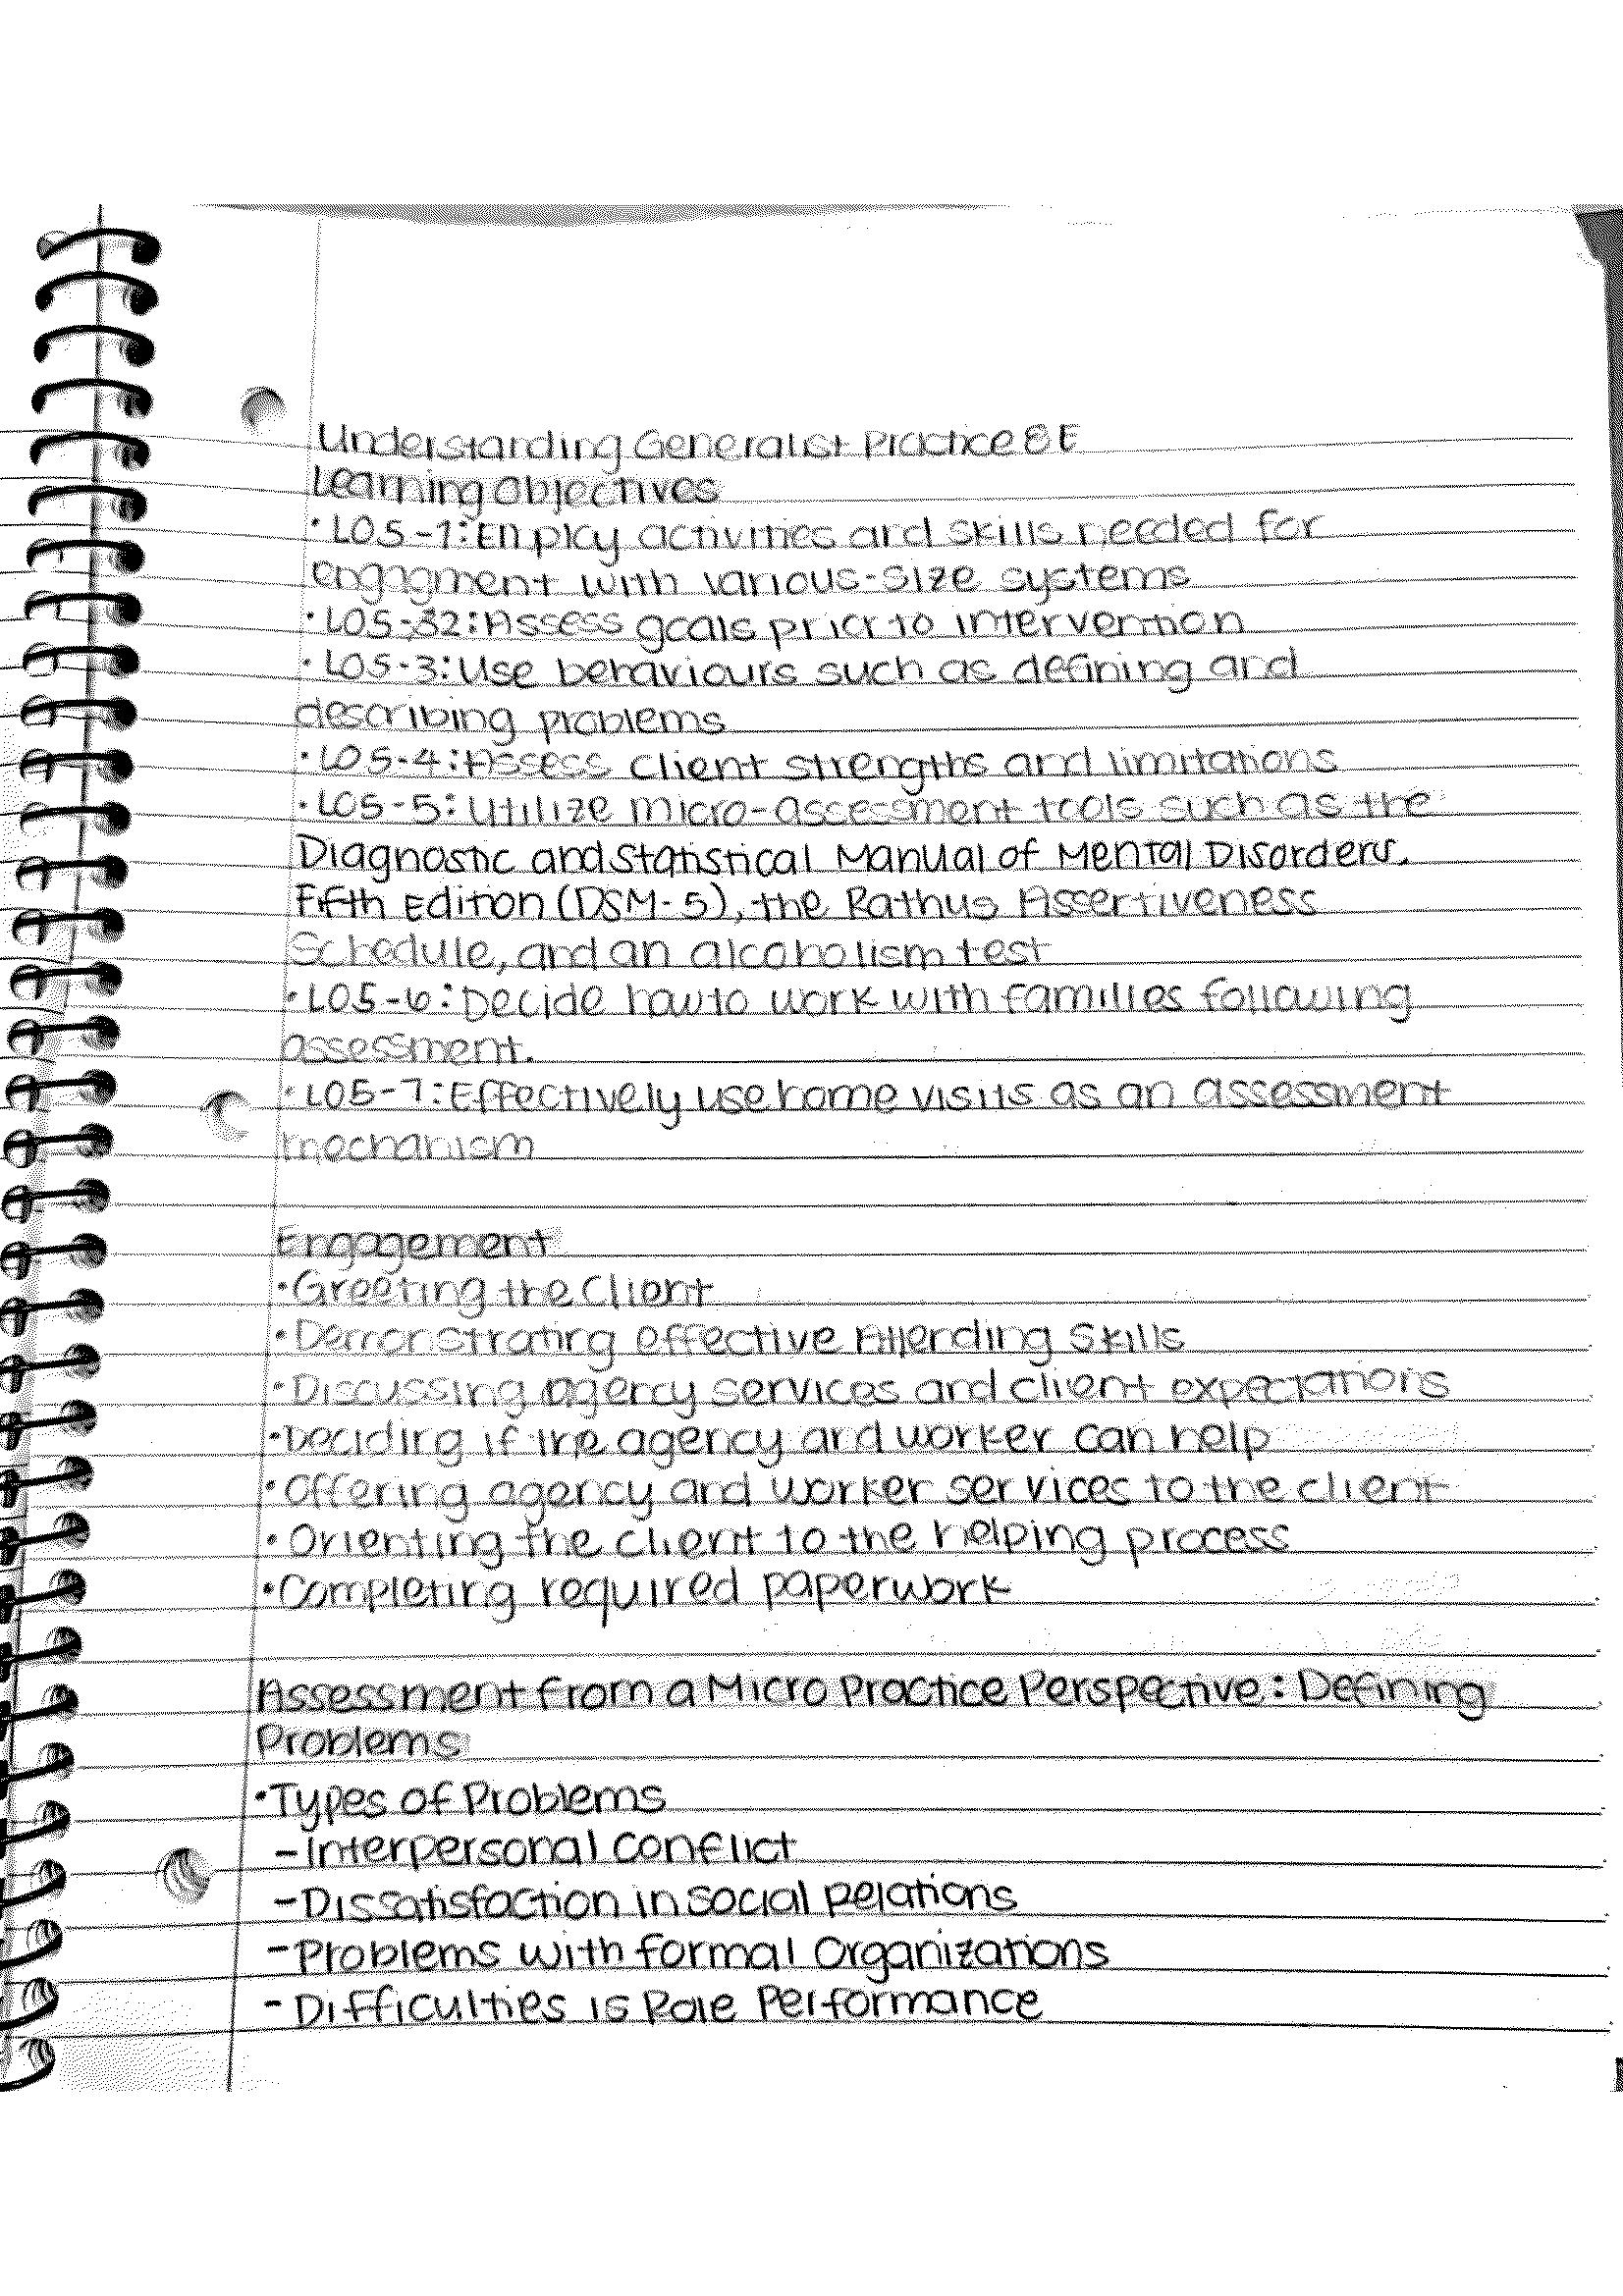 Understanding Generalist Practice 8E
Learning Objectives
• LO5-1: Employ activities and skills needed for
engagment with various-size systems
• LO5-2: Assess goals prior to intervention
• LO5-3: Use behaviours such as defining and
describing problems
• LO5-4: Assess client strengths and limitations
• LO5-5: Utilize micro-assessment tools such as the
Diagnostic and Statistical Manual of Mental Disorders,
Fifth Edition (DSM-5), the Rathus Assertiveness
Schedule, and an alcoholism test
• LO5-6: Decide how to work with families following
assessment.
• LO5-7: Effectively use home visits as an assessment
mechanism
Engagement
• Greeting the Client
• Demonstrating effective Attending Skills
• Discussing agency services and client expectations
• Deciding if the agency and worker can help
• Offering agency and worker services to the client
• Orienting the client to the helping process
• Completing required paperwork
Assessment from a Micro Practice Perspective: Defining
Problems
• Types of Problems
- Interpersonal Conflict
- Dissatisfaction in Social Relations
- Problems with formal Organizations
- Difficulties is Role Performance